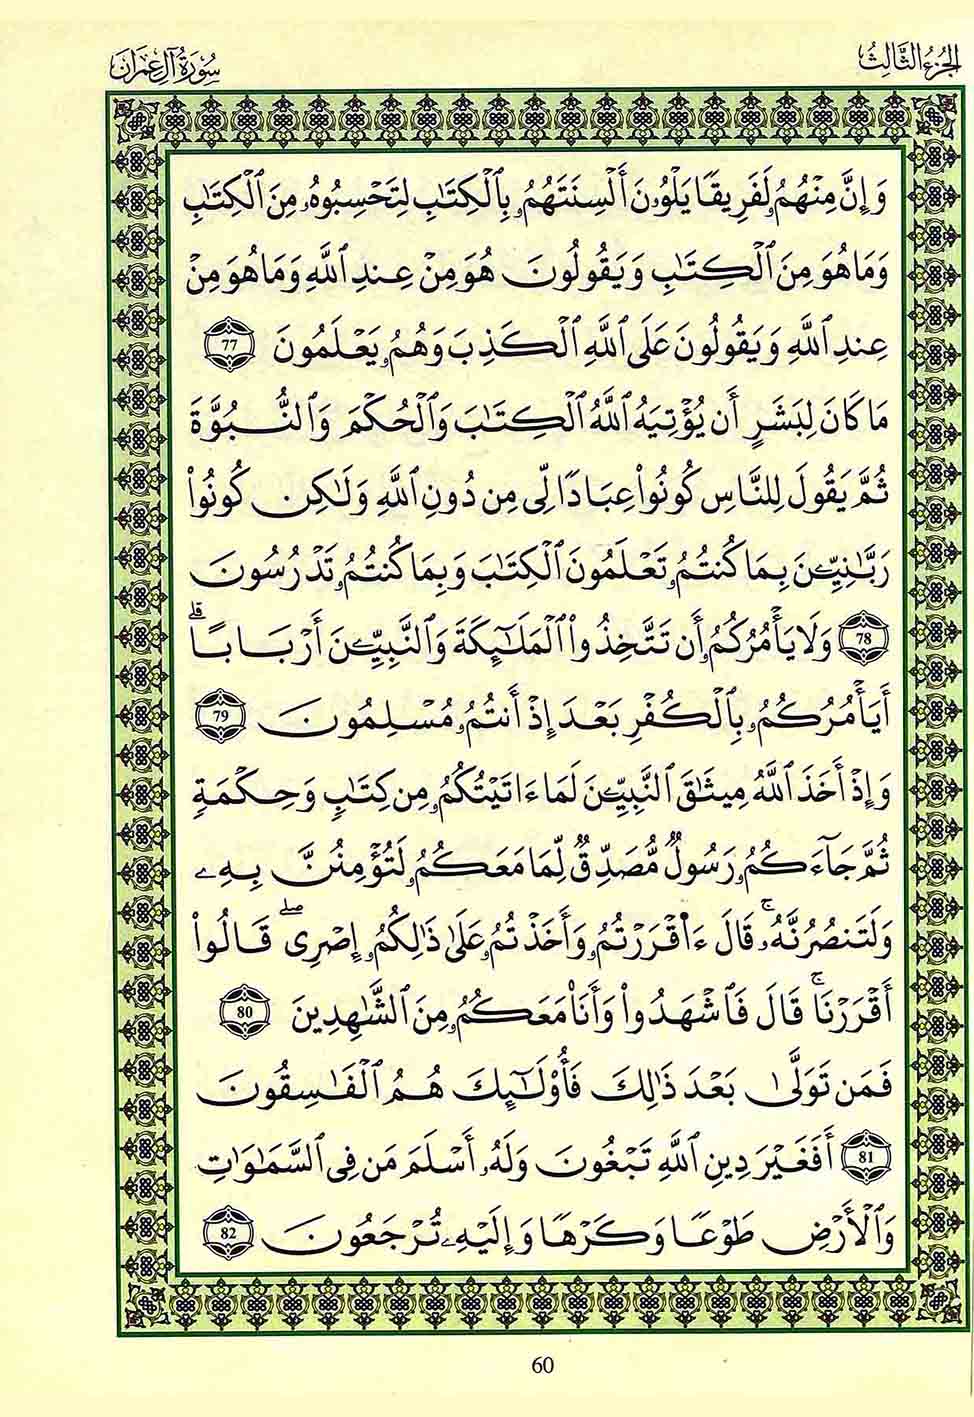 الجزء الثالث
سورة آل عمران
وَإِنَّ مِنْهُمُۥ لَفَرِيقًا يَلْوُۥنَ أَلْسِنَتَهُمُۥ بِٱلْكِتَٰبِ لِتَحْسِبُوهُۥ مِنَ ٱلْكِتَٰبِ
وَمَا هُوَ مِنَ ٱلْكِتَٰبِ وَيَقُولُونَ هُوَ مِنْ عِندِ ٱللَّهِ وَمَا هُوَ مِنْ
عِندِ ٱللَّهِ وَيَقُولُونَ عَلَى ٱللَّهِ ٱلْكَذِبَ وَهُمُۥ يَعْلَمُونَ 77
مَا كَانَ لِبَشَرٍ أَن يُؤْتِيَهُ ٱللَّهُ ٱلْكِتَٰبَ وَٱلْحُكْمَ وَٱلنُّبُوَّةَ
ثُمَّ يَقُولَ لِلنَّاسِ كُونُوا۟ عِبَادًا لِّى مِن دُونِ ٱللَّهِ وَلَٰكِن كُونُوا۟
رَبَّٰنِيِّۦنَ بِمَا كُنتُمُۥ تَعْلَمُونَ ٱلْكِتَٰبَ وَبِمَا كُنتُمُۥ تَدْرُسُونَ
78 وَلَا يَأْمُرُكُمُۥ أَن تَتَّخِذُوا۟ ٱلْمَلَٰٓئِكَةَ وَٱلنَّبِيِّۦنَ أَرْبَابًا ۗ
أَيَأْمُرُكُمُۥ بِٱلْكُفْرِ بَعْدَ إِذْ أَنتُمُۥ مُسْلِمُونَ 79
وَإِذْ أَخَذَ ٱللَّهُ مِيثَٰقَ ٱلنَّبِيِّۦنَ لَمَا ءَاتَيْتُكُمُۥ مِن كِتَٰبٍ وَحِكْمَةٍ
ثُمَّ جَآءَكُمُۥ رَسُولٌ مُّصَدِّقٌ لِّمَا مَعَكُمُۥ لَتُؤْمِنُنَّ بِهِۦ
وَلَتَنصُرُنَّهُۥ ۚ قَالَ ءَا۬قْرَرْتُمُۥ وَأَخَذْتُمُۥ عَلَىٰ ذَٰلِكُمُۥ إِصْرِى ۖ قَالُوا۟
أَقْرَرْنَا ۚ قَالَ فَٱشْهَدُوا۟ وَأَنَا۠ مَعَكُمُۥ مِنَ ٱلشَّٰهِدِينَ 80
فَمَن تَوَلَّىٰ بَعْدَ ذَٰلِكَ فَأُو۟لَٰٓئِكَ هُمُ ٱلْفَٰسِقُونَ
81 أَفَغَيْرَ دِينِ ٱللَّهِ تَبْغُونَ وَلَهُۥٓ أَسْلَمَ مَن فِى ٱلسَّمَٰوَٰتِ
وَٱلْأَرْضِ طَوْعًا وَكَرْهًا وَإِلَيْهِۦ تُرْجَعُونَ 82
60